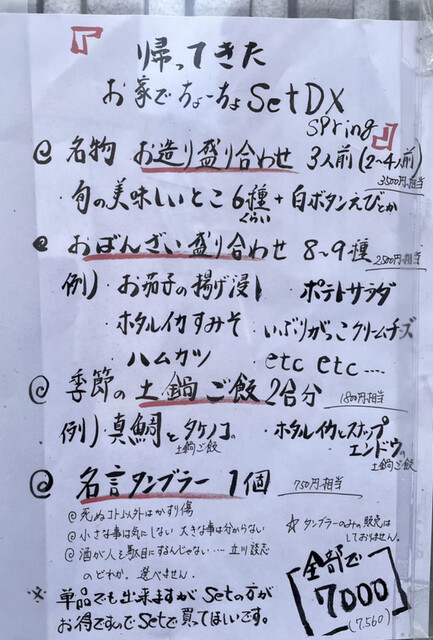 『帰ってきた
お家でちょーちょSetDX
spring』
@ 名物 お造り盛り合わせ 3人前(2~4人前)
3500円相当
・旬の美味しいとこ6種くらい+白ボタンえびとか
@ おばんざい盛り合わせ 8~9種
2500円相当
例)・お茄子の揚げ浸し ・ポテトサラダ
・ホタルイカすみそ ・いぶりがっこクリームチーズ
・ハムカツ ・etc etc....
@ 季節の土鍋ご飯 2合分
1800円相当
例)・真鯛とタケノコの土鍋ご飯 ・ホタルイカとスナップエンドウの土鍋ご飯
@ 名言タンブラー 1個 750円相当
@ 死ぬコト以外はかすり傷
@ 小さな事は気にしない 大きな事は分からない
@ 酒が人を駄目にするんじゃない… 立川談志
のどれか。選べません。
☆ タンブラーのみの販売はしておりません。
※ 単品でも出来ますがSetの方が
お得ですのでSetで買ってほしいです。
全部で
7000
(7,560)